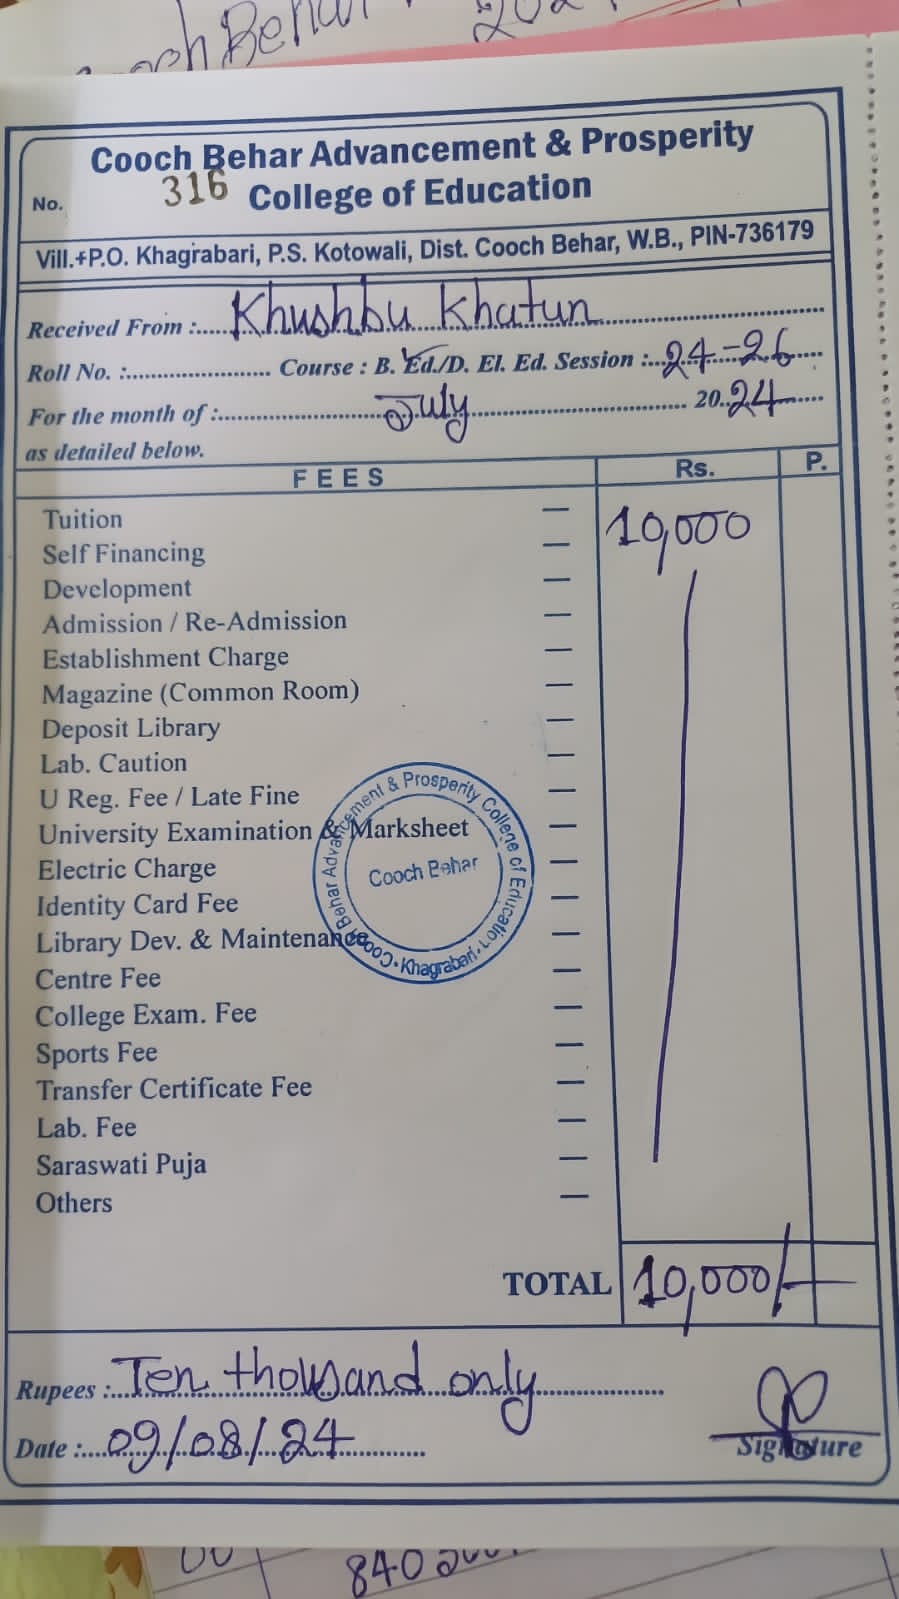 Cooch Behar
Cooch Behar Advancement & Prosperity
No. 316 College of Education
Vill.+P.O. Khagrabari, P.S. Kotowali, Dist. Cooch Behar, W.B., PIN-736179
Received From :..... Khushbu Khatun
Roll No. :...................... Course : B. Ed./D. El. Ed. Session :.. 24-26
For the month of :.......... July .......... 20..24
as detailed below.
FEES Rs. P.
Tuition — 10,000
Self Financing —
Development —
Admission / Re-Admission —
Establishment Charge —
Magazine (Common Room) —
Deposit Library —
Lab. Caution —
U Reg. Fee / Late Fine —
University Examination & Marksheet —
Electric Charge —
Identity Card Fee —
Library Dev. & Maintenance —
Centre Fee —
College Exam. Fee —
Sports Fee —
Transfer Certificate Fee —
Lab. Fee —
Saraswati Puja —
Others —
Cooch Behar Advancement & Prosperity College of Education
Cooch Behar
Khagrabari
TOTAL 10,000/-
Rupees :.. Ten thousand only
Date :.... 09/08/24
Signature